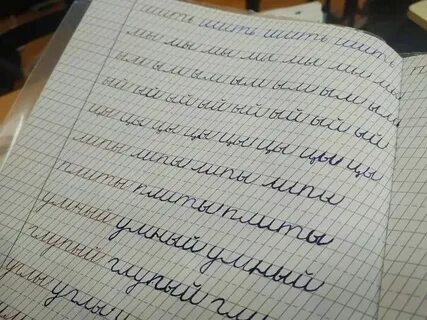 шить шить шить шить
мы мы мы мы мы мы мы
ым ым ым ым ым ым ым
ый ый ый ый ый ый ый ый
цы цы цы цы цы цы цы цы
липы липы липы липы
плиты плиты плиты
умный умный умный
глупый глупый
углы углы